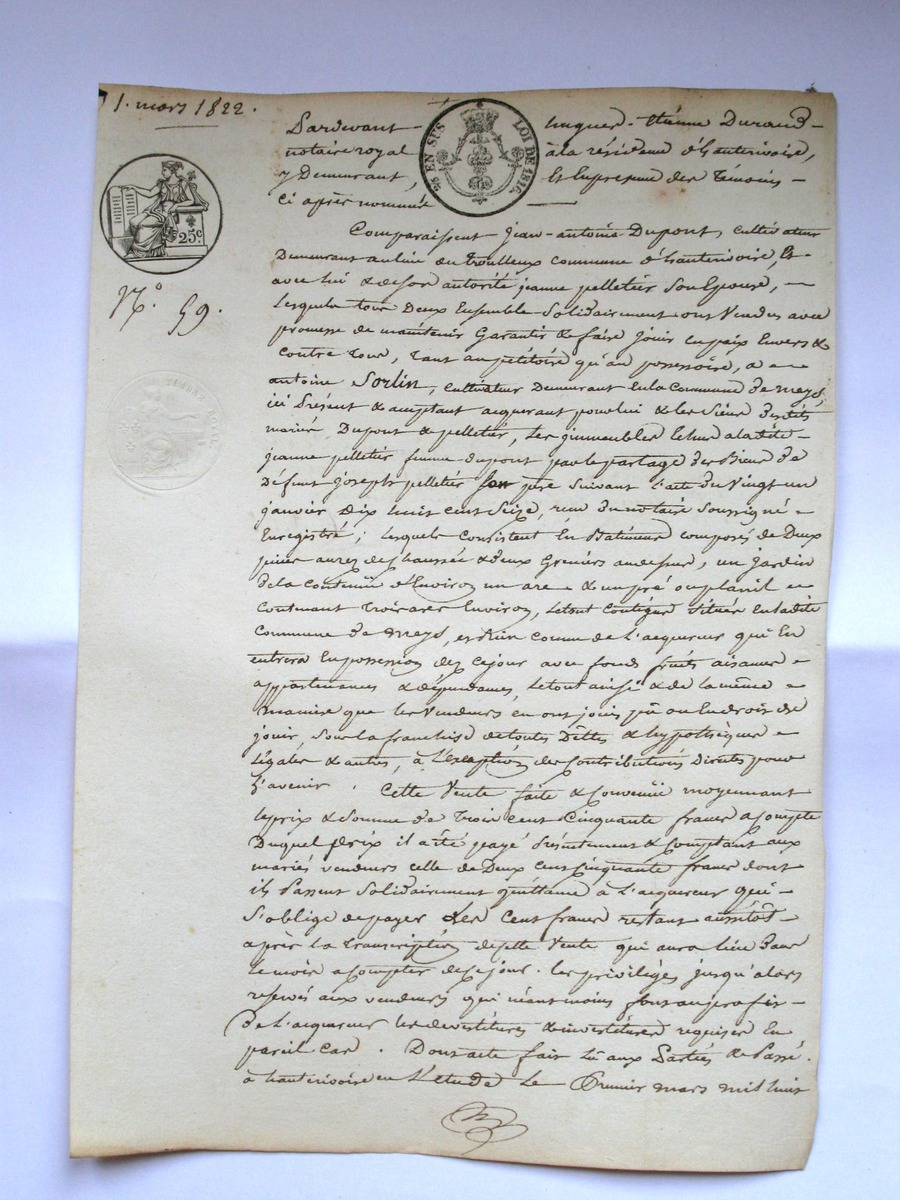 1. mars 1822.
Pardevant hugues-étienne Durand
notaire royal à la résidence d'hauterivoire,
y Demeurant, Et En presence des Témoins
ci après nommés
25 EN SUS LOI DE 1816.
25c
N.o 59.
TIMBRE ROYAL
Comparaissent jean-antoine Dupont, cultivateur
Demeurant au lieu du trouilleux commune d'hauterivoire, Et
avec lui & de son autorité jeanne pelletier Son Epouse,
Lesquels tous Deux Ensemble Solidairement ont Vendus avec
promesse de maintenir Garantir & faire jouir en paix Envers &
Contre Tous, Tant au petitoire qu'au possessoire, a
antoine Sorlin, cultivateur Demeurant En la Commune de meys,
ici Présent & acceptant acquerant pour lui & les Siens Desdits
mariés Dupont & pelletier, Les immeubles Echus a la dite
jeanne pelletier femme dupont par le partage des Biens de
Défunt joseph pelletier Son père Suivant L'acte du Vingt un
janvier Dix huit cent Seize, reçu Du notaire Soussigné
Enregistré; lesquels Consistent En Batiments composés de Deux
pieces au rez de chaussée & deux Greniers audessus, un jardin
de la Contenue d'Environ un are & un pré ou plansil
Contenant Trois ares Environ, le tout Contigue Situés En ladite
Commune de meys, & bien connu de L'acquereur qui En
entrera En possession dez ce jour avec fonds fruits aisances
appartenances & dépendances, Le tout ainsi & de la même
maniere que les Vendeurs en ont jouis pû ou En droit de
jouir, Sous la franchise de toutes Dettes & hypothèques
Légales & autres, à L'exception des Contributions Directes pour
L'avenir. Cette Vente faite & Convenüe moyennant
le prix & Somme de Trois Cent Cinquante francs a Compte
Duquel prix il a été payé Présentement & Comptant aux
mariés vendeurs celle de Deux Cent Cinquante francs dont
ils Passent Solidairement quittance à L'acquereur qui
S'oblige de payer Les Cent francs restant aussitôt
après la Transcription de cette Vente qui aura lieu Dans
Le mois a Compter de ce jour. Les privilèges jusqu'alors
reservés aux vendeurs qui néanmoins font au profit
de L'acquereur les devestitures & investitures requises En
pareil Cas. Dont acte fait Lu aux Parties & Passé
à hauterivoire en L'étude Le Premier mars mil huit